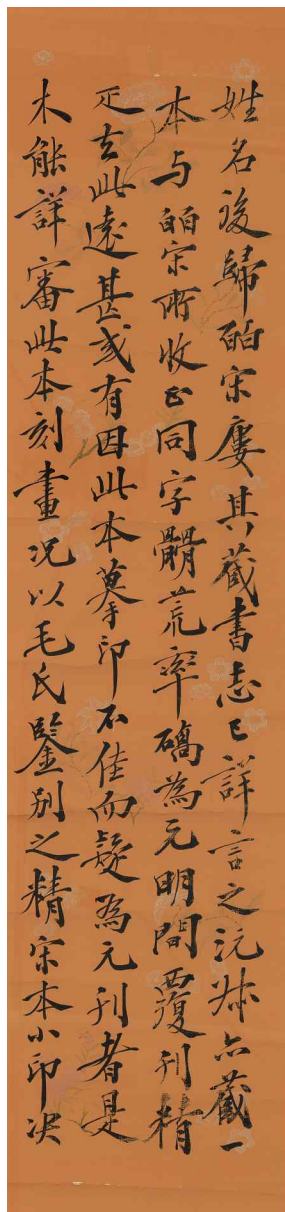 姓名後歸皕宋廔其藏書志已詳言之沅叔亦藏一
本与皕宋所收正同字體荒率碻為元明間覆刊精
疋去此遠甚或有因此本摹印不佳而疑為元刊者是
未能詳審此本刻畫况以毛氏鑒別之精宋本小印决